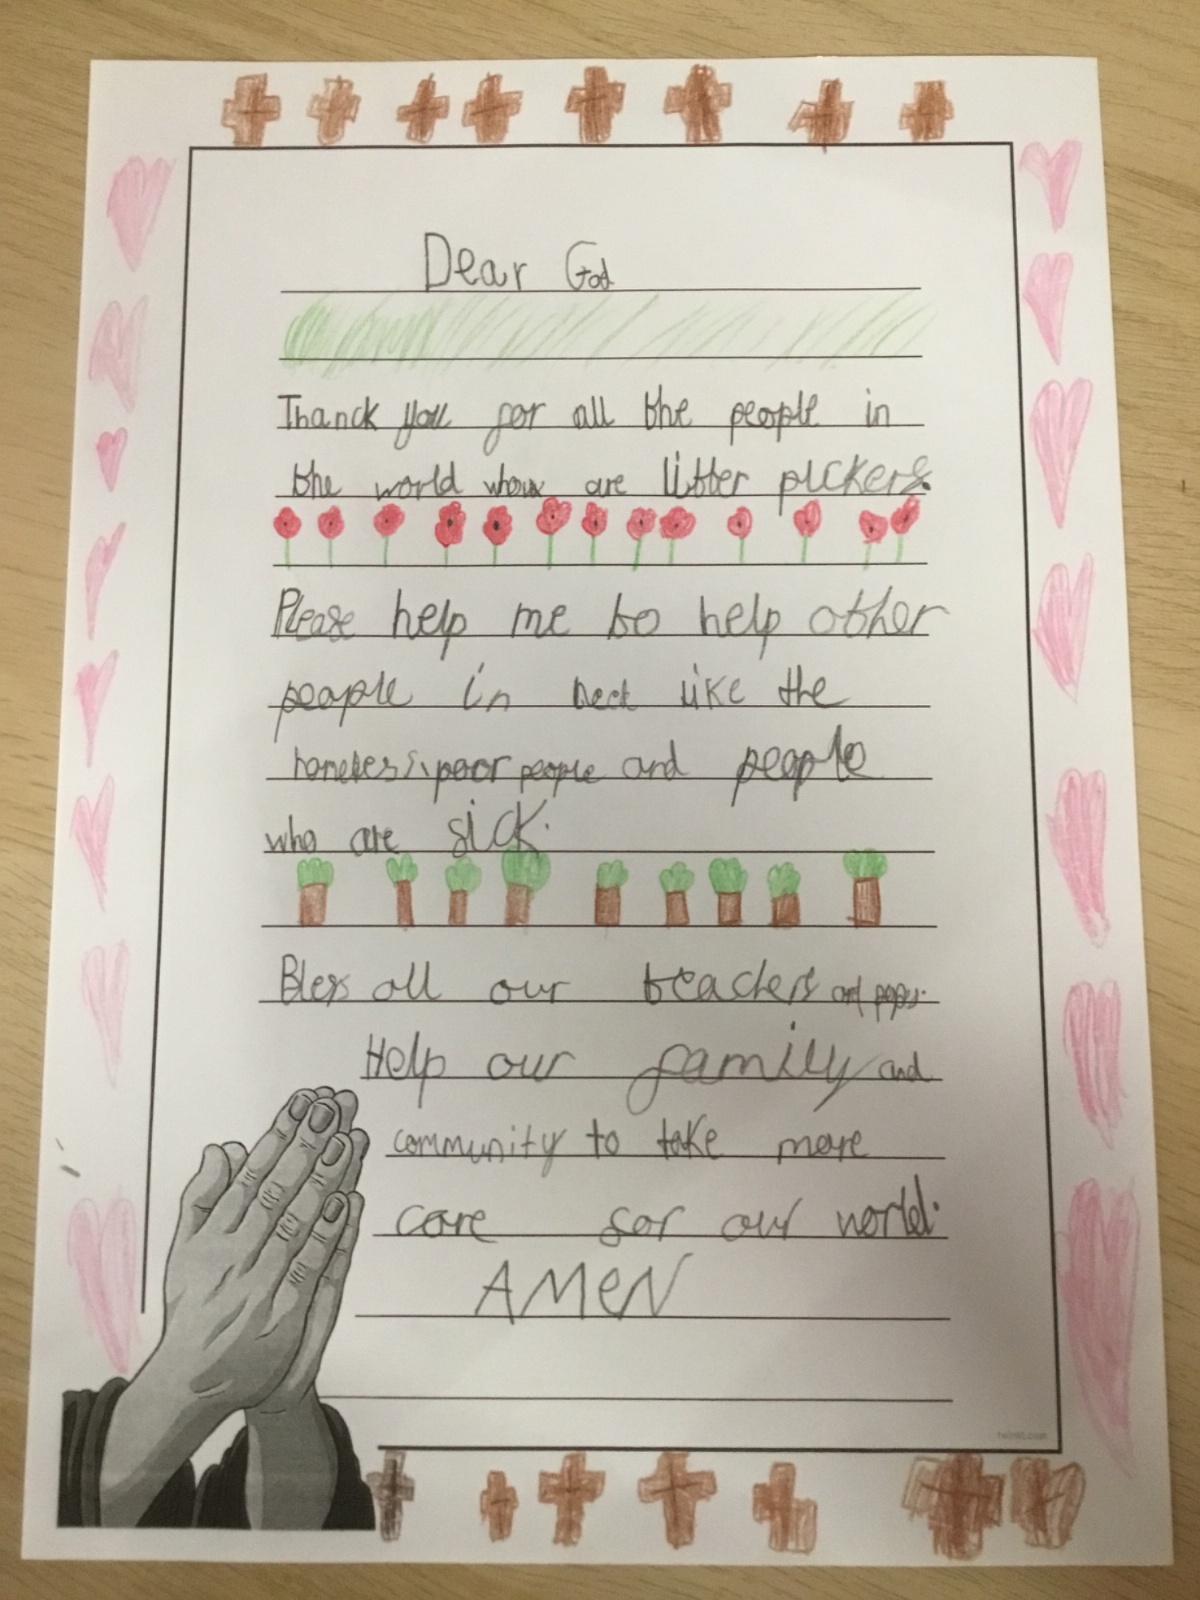 Dear God
Thanck you for all the people in
the world who are litter pickers.
Please help me to help other
people in like the
poor people and people
who are sick.
Bless all our teachers and
Help our family and
community to take more
care for our world.
AMeN
twinkl.com